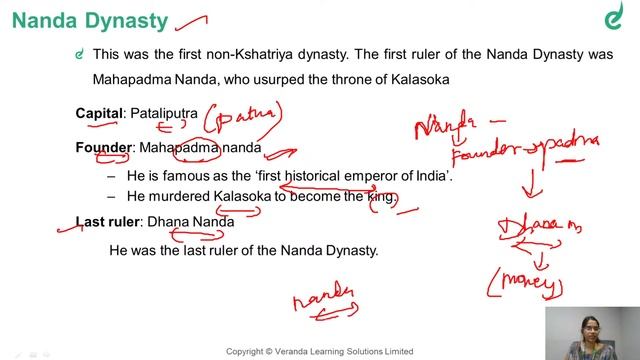 Nanda Dynasty
This was the first non-Kshatriya dynasty. The first ruler of the Nanda Dynasty was
Mahapadma Nanda, who usurped the throne of Kalasoka
Capital: Pataliputra (Patna)
Founder: Mahapadma nanda
– He is famous as the 'first historical emperor of India'.
– He murdered Kalasoka to become the king.
Last ruler: Dhana Nanda
He was the last ruler of the Nanda Dynasty.
Nanda –
Founder → padma
Dhana n
(money)
nanda
Copyright © Veranda Learning Solutions Limited